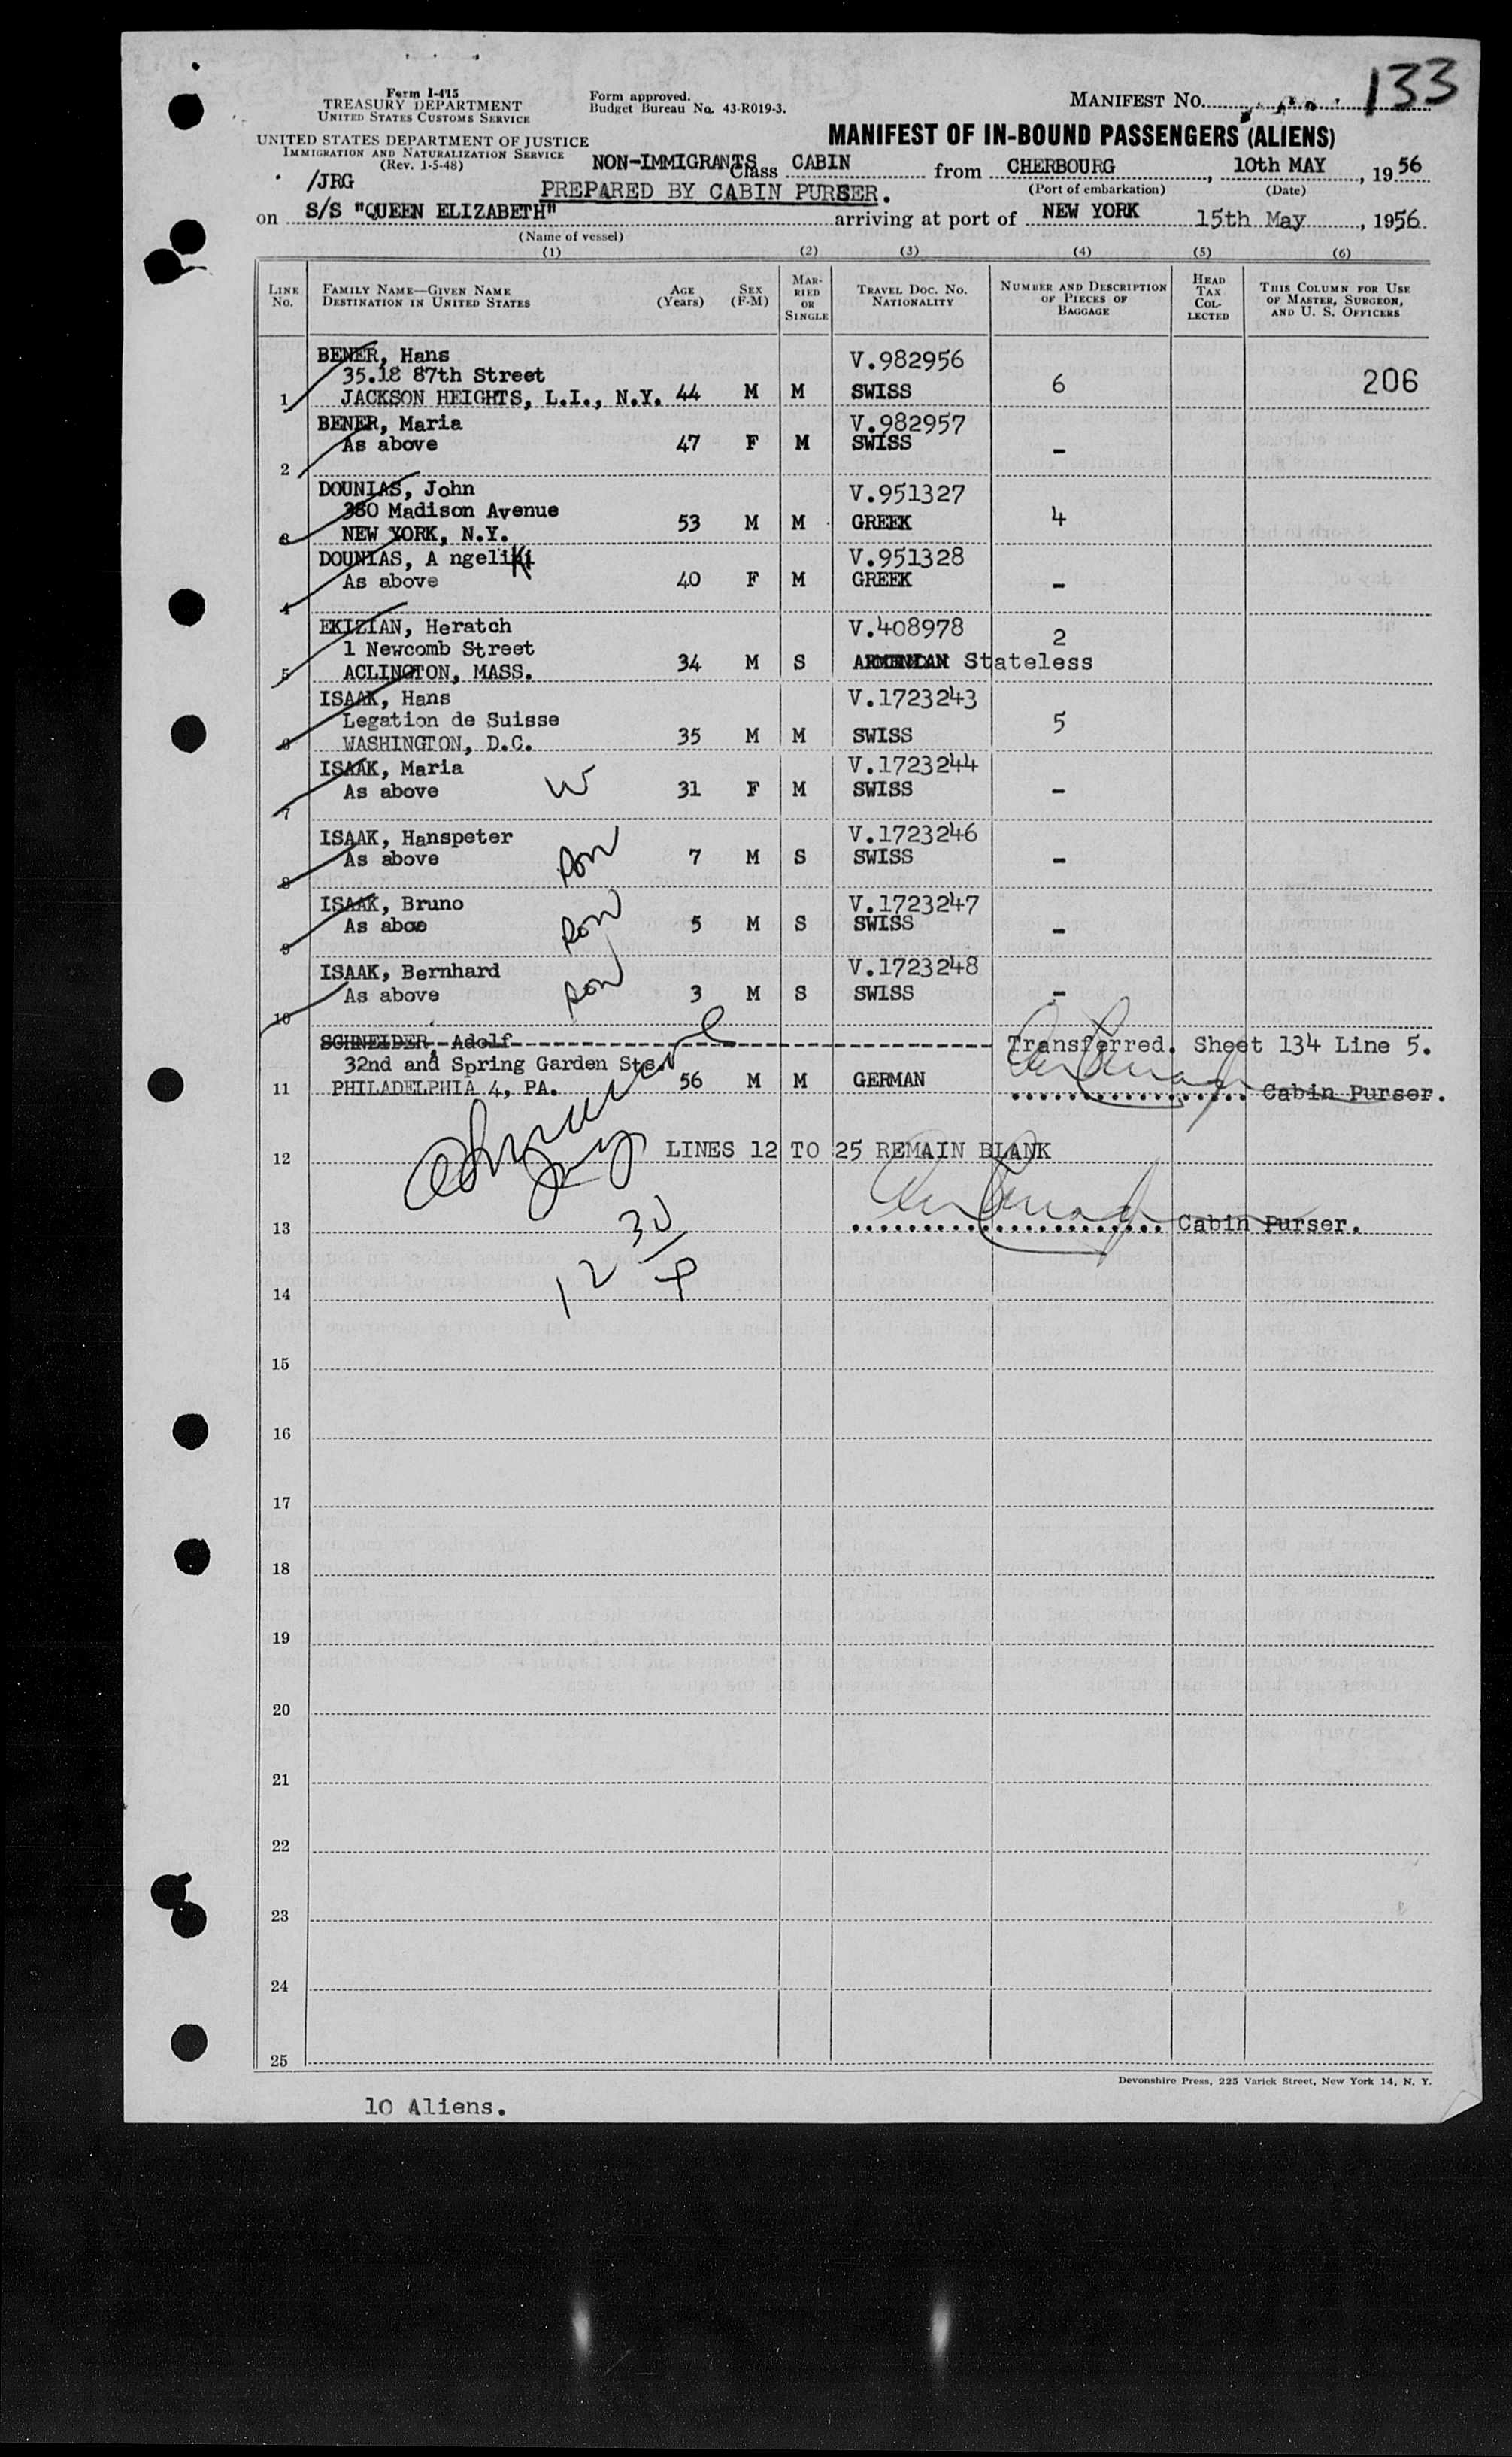 133
Form I-415
TREASURY DEPARTMENT
UNITED STATES CUSTOMS SERVICE
UNITED STATES DEPARTMENT OF JUSTICE
IMMIGRATION AND NATURALIZATION SERVICE
(Rev. 1-5-48)
Form approved.
Budget Bureau No. 43-R019-3.
MANIFEST NO.
MANIFEST OF IN-BOUND PASSENGERS (ALIENS)
NON-IMMIGRANTS Class CABIN from CHERBOURG, 10th MAY, 1956
(Port of embarkation) (Date)
/JRG PREPARED BY CABIN PURSER.
on S/S "QUEEN ELIZABETH" arriving at port of NEW YORK 15th May, 1956.
(Name of vessel)
(1) (2) (3) (4) (5) (6)
LINE No. FAMILY NAME—GIVEN NAME DESTINATION IN UNITED STATES AGE (Years) SEX (F-M) MARRIED OR SINGLE TRAVEL DOC. NO. NATIONALITY NUMBER AND DESCRIPTION OF PIECES OF BAGGAGE HEAD TAX COLLECTED THIS COLUMN FOR USE OF MASTER, SURGEON, AND U. S. OFFICERS
BENER, Hans V.982956
35.18 87th Street
1 JACKSON HEIGHTS, L.I., N.Y. 44 M M SWISS 6 206
BENER, Maria V.982957
As above 47 F M SWISS -
2
DOUNIAS, John V.951327
380 Madison Avenue
3 NEW YORK, N.Y. 53 M M GREEK 4
DOUNIAS, A ngeliki V.951328
As above 40 F M GREEK -
4
EKIZIAN, Heratch V.408978
1 Newcomb Street 2
5 ACLINGTON, MASS. 34 M S ARMENIAN Stateless
ISAAK, Hans V.1723243
Legation de Suisse
6 WASHINGTON, D.C. 35 M M SWISS 5
ISAAK, Maria V.1723244
As above W 31 F M SWISS -
7
ISAAK, Hanspeter V.1723246
As above son 7 M S SWISS -
8
ISAAK, Bruno V.1723247
As aboe son 5 M S SWISS -
9
ISAAK, Bernhard V.1723248
As above son 3 M S SWISS -
10
SCHNEIDER, Adolf Transferred. Sheet 134 Line 5.
32nd and Spring Garden Sts.
11 PHILADELPHIA 4, PA. 56 M M GERMAN Cabin Purser.
12 LINES 12 TO 25 REMAIN BLANK
13 Cabin Purser.
12 30/P
14
15
16
17
18
19
20
21
22
23
24
25
Devonshire Press, 225 Varick Street, New York 14, N. Y.
10 Aliens.